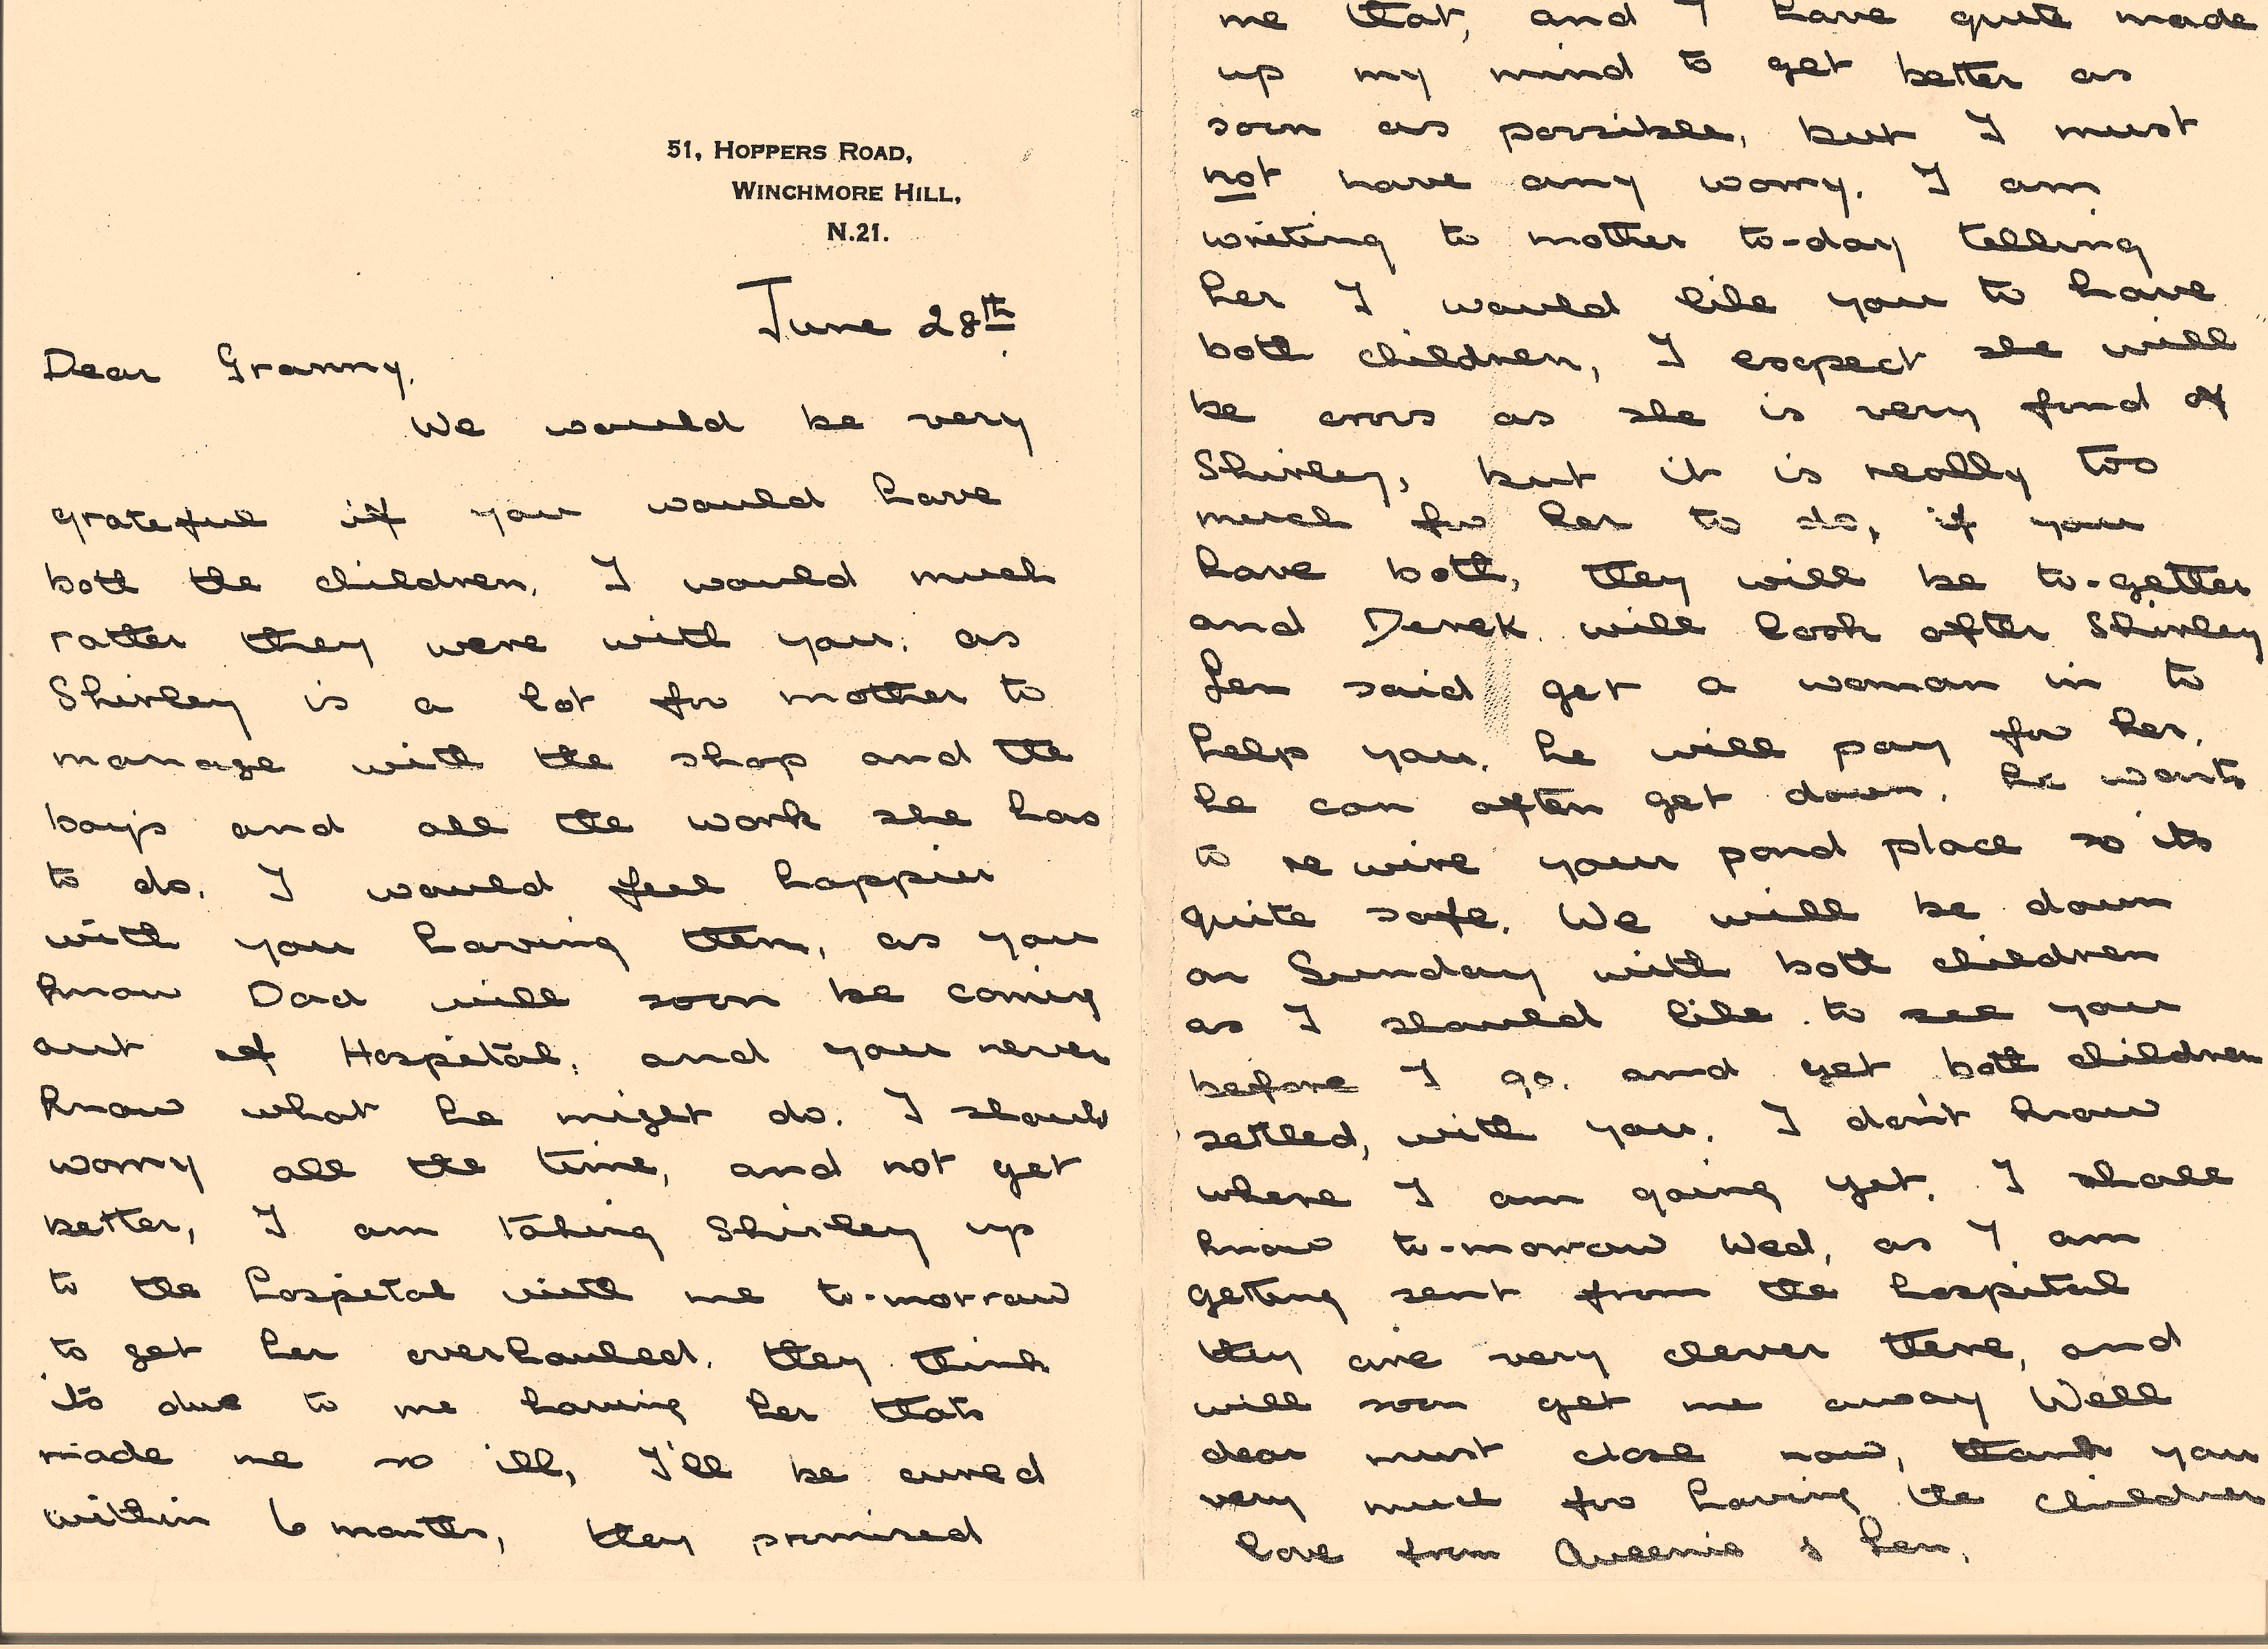 51, HOPPERS ROAD,
WINCHMORE HILL,
N.21.
June 28th
Dear Granny,
We would be very
grateful if you would have
both the children, I would much
rather they were with you, as
Shirley is a lot for mother to
manage with the shop and the
boys and all the work she has
to do. I would feel happier
with you having them, as you
know Dad will soon be coming
out of Hospital, and you never
know what he might do. I should
worry all the time, and not get
better, I am taking Shirley up
to the hospital with me to-morrow
to get her overhauled. they think
its due to me having her thats
made me so ill, I'll be cured
within 6 months, they promised
me that, and I have quite made
up my mind to get better as
soon as possible, but I must
not have any worry. I am
writing to mother to-day telling
her I would like you to have
both children, I expect she will
be cross as she is very fond of
Shirley, but it is really too
much for her to do, if you
have both, they will be to-gether
and Derek will look after Shirley
Len said get a woman in to
help you, he will pay for her,
he can often get down, he wants
to re wire your pond place so its
quite safe. We will be down
on Sunday with both children
as I should like to see you
before I go. and get both children
settled, with you. I don't know
where I am going yet, I shall
know to-morrow Wed, as I am
getting sent from the hospital
they are very clever there, and
will soon get me away Well
dear must close now, thank you
very much for having the children
love from Queenie & Len.